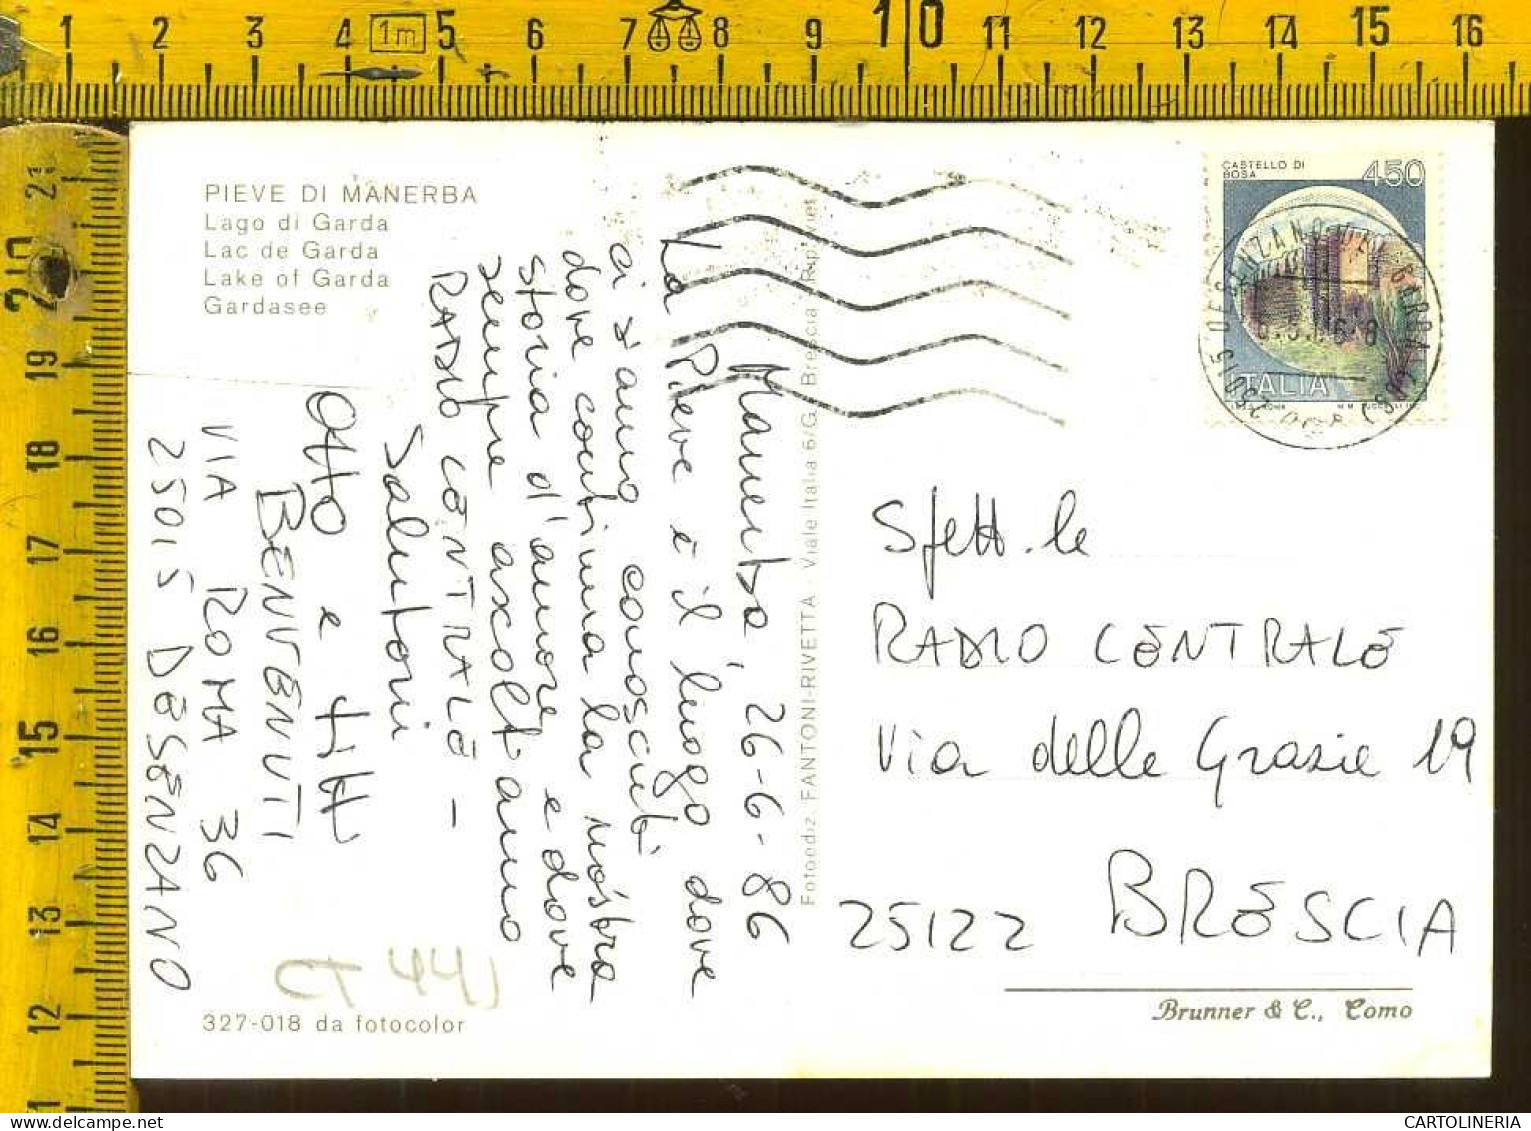 PIEVE DI MANERBA
Lago di Garda
Lac de Garda
Lake of Garda
Gardasee
Manerba, 26-6-86
La Pieve è il luogo dove
ci siamo conosciuti
dove continua la nostra
storia d'amore e dove
sempre ascoltiamo
RADIO CENTRALE -
Salutoni
Otto e
BENVENUTI
VIA ROMA 36
25015 DESENZANO
CT 441
327-018 da fotocolor
Fotoediz. FANTONI-RIVETTA - Viale Italia 6/G Brescia - Rip. viet.
CASTELLO DI
BOSA
450
ITALIA
Spett.le
RADIO CENTRALE
Via delle Grazie 19
25122 BRESCIA
Brunner & C., Como
1 2 3 4 1m 5 6 7 8 9 10 11 12 13 14 15 16
21
20
19
18
17
16
15
14
13
12
11
CARTOLINERIA